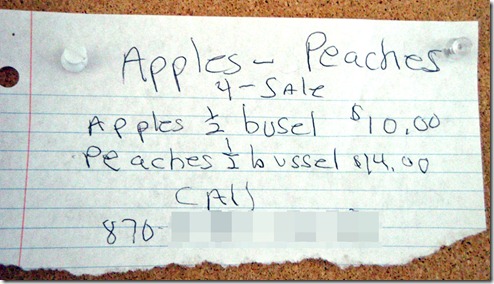 Apples - Peaches
4-SAle
Apples ½ busel $10.00
Peaches ½ bussel $14.00
CAll
870-